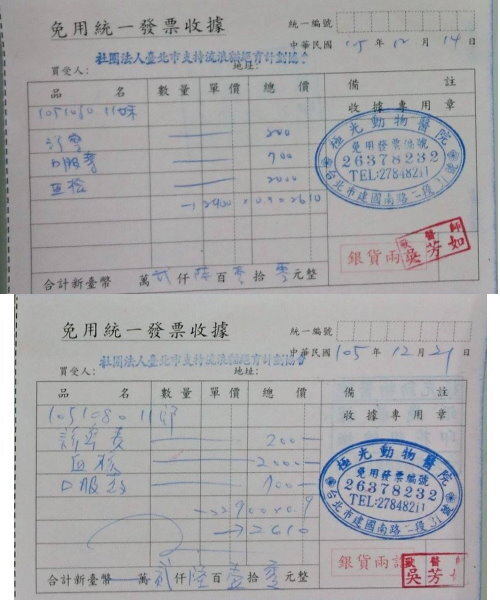 免用統一發票收據
統一編號
中華民國 105 年 12 月 14 日
社團法人臺北市支持流浪貓絕育計劃協會
買受人： 地址：
品名 數量 單價 總價 備註
1051080 11妹 收據專用章
診察 200
口服藥 700
血檢 2000
→ 2900 x 0.9 = 2610
極光動物醫院
免用發票編號
26378232
TEL:27848211
台北市建國南路二段31號
銀貨兩
獸醫師
吳芳如
合計新臺幣 萬 貳 仟 陸 百 壹 拾 零 元整
免用統一發票收據
統一編號
中華民國 105 年 12 月 21 日
社團法人臺北市支持流浪貓絕育計劃協會
買受人： 地址：
品名 數量 單價 總價 備註
1051080 11 收據專用章
診察費 200
血檢 2000
口服藥 700
→ 2900 x 0.9
→ 2610
極光動物醫院
免用發票編號
26378232
TEL:27848211
台北市建國南路二段31號
銀貨兩
獸醫
吳芳
合計新臺幣 萬 貳 仟 陸 百 壹 拾 零 元整